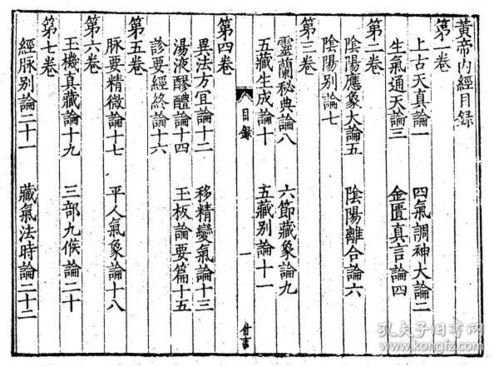 黃帝內經目錄
第一卷
上古天真論一 四氣調神大論二
生氣通天論三 金匱真言論四
第二卷
陰陽應象大論五 陰陽離合論六
陰陽別論七
第三卷
靈蘭秘典論八 六節藏象論九
五藏生成論十 五藏別論十一
目錄 一
第四卷
異法方宜論十二 移精變氣論十三
湯液醪醴論十四 玉板論要篇十五
診要經終論十六
第五卷
脉要精微論十七 平人氣象論十八
第六卷
玉機真藏論十九 三部九候論二十
第七卷
經脉別論二十一 藏氣法時論二十二
孔夫子旧书网
www.kongfz.com